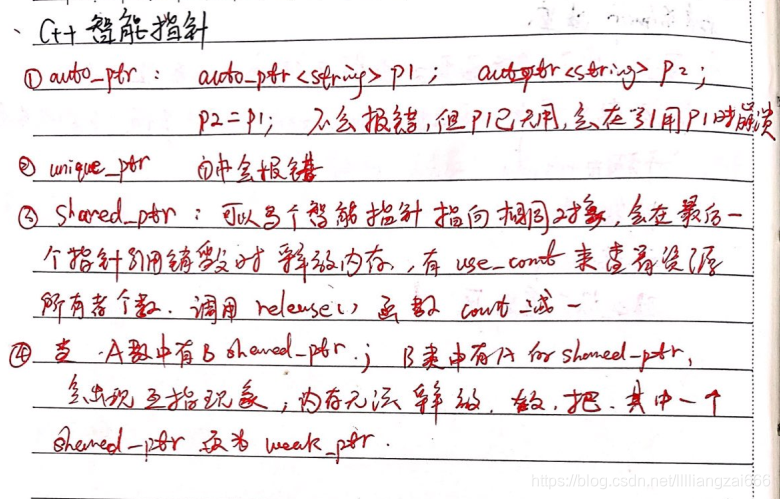 、C++ 智能指针
① auto_ptr： auto_ptr<string> p1； autoptr<string> p2；
p2=p1； 不会报错，但p1已无用，会在引用p1时崩溃
② unique_ptr ①中会报错
③ Shared_ptr：可以多个智能指针指向相同对象，会在最后一
个指针引用销毁时释放内存，有 use_count 来查看资源
所有者个数．调用 release() 函数 count 减一
④ 当 A类中有B shared_ptr．； B类中有A for shared_ptr，
会出现互指现象，内存无法释放．故．把．其中一个
shared_ptr 改为 weak_ptr．
https://blog.csdn.net/llllliangzai666